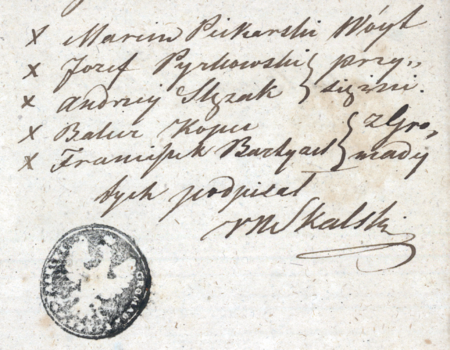 x Marcin Piekarski Wóyt
x Jozef Pyrkowski } przy„
x Andrzey Slęzak } sięzni.
x Balcer Kopiec } z Gro„
x Franciszek Bartyzel } mady
tych podpisał
Skalski